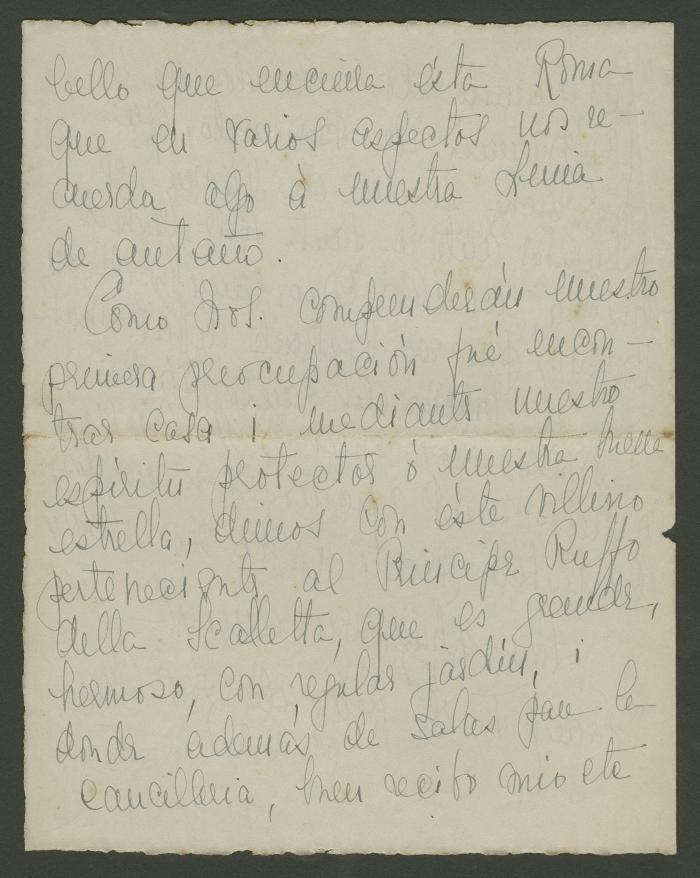 bello que encierra ésta Roma
que en varios aspectos nos re-
cuerda algo á nuestra Lima
de antaño.
Como Uds. comprenderán nuestra
primera preocupación fué encon-
trar casa i mediante nuestro
espíritu protector ó nuestra buena
estrella, dimos con éste villino
perteneciente al Principe Ruffo
della Scalletta, que es grande,
hermoso, con regular jardín, i
donde además de salas para la
cancilleria, buen recibo mio etc